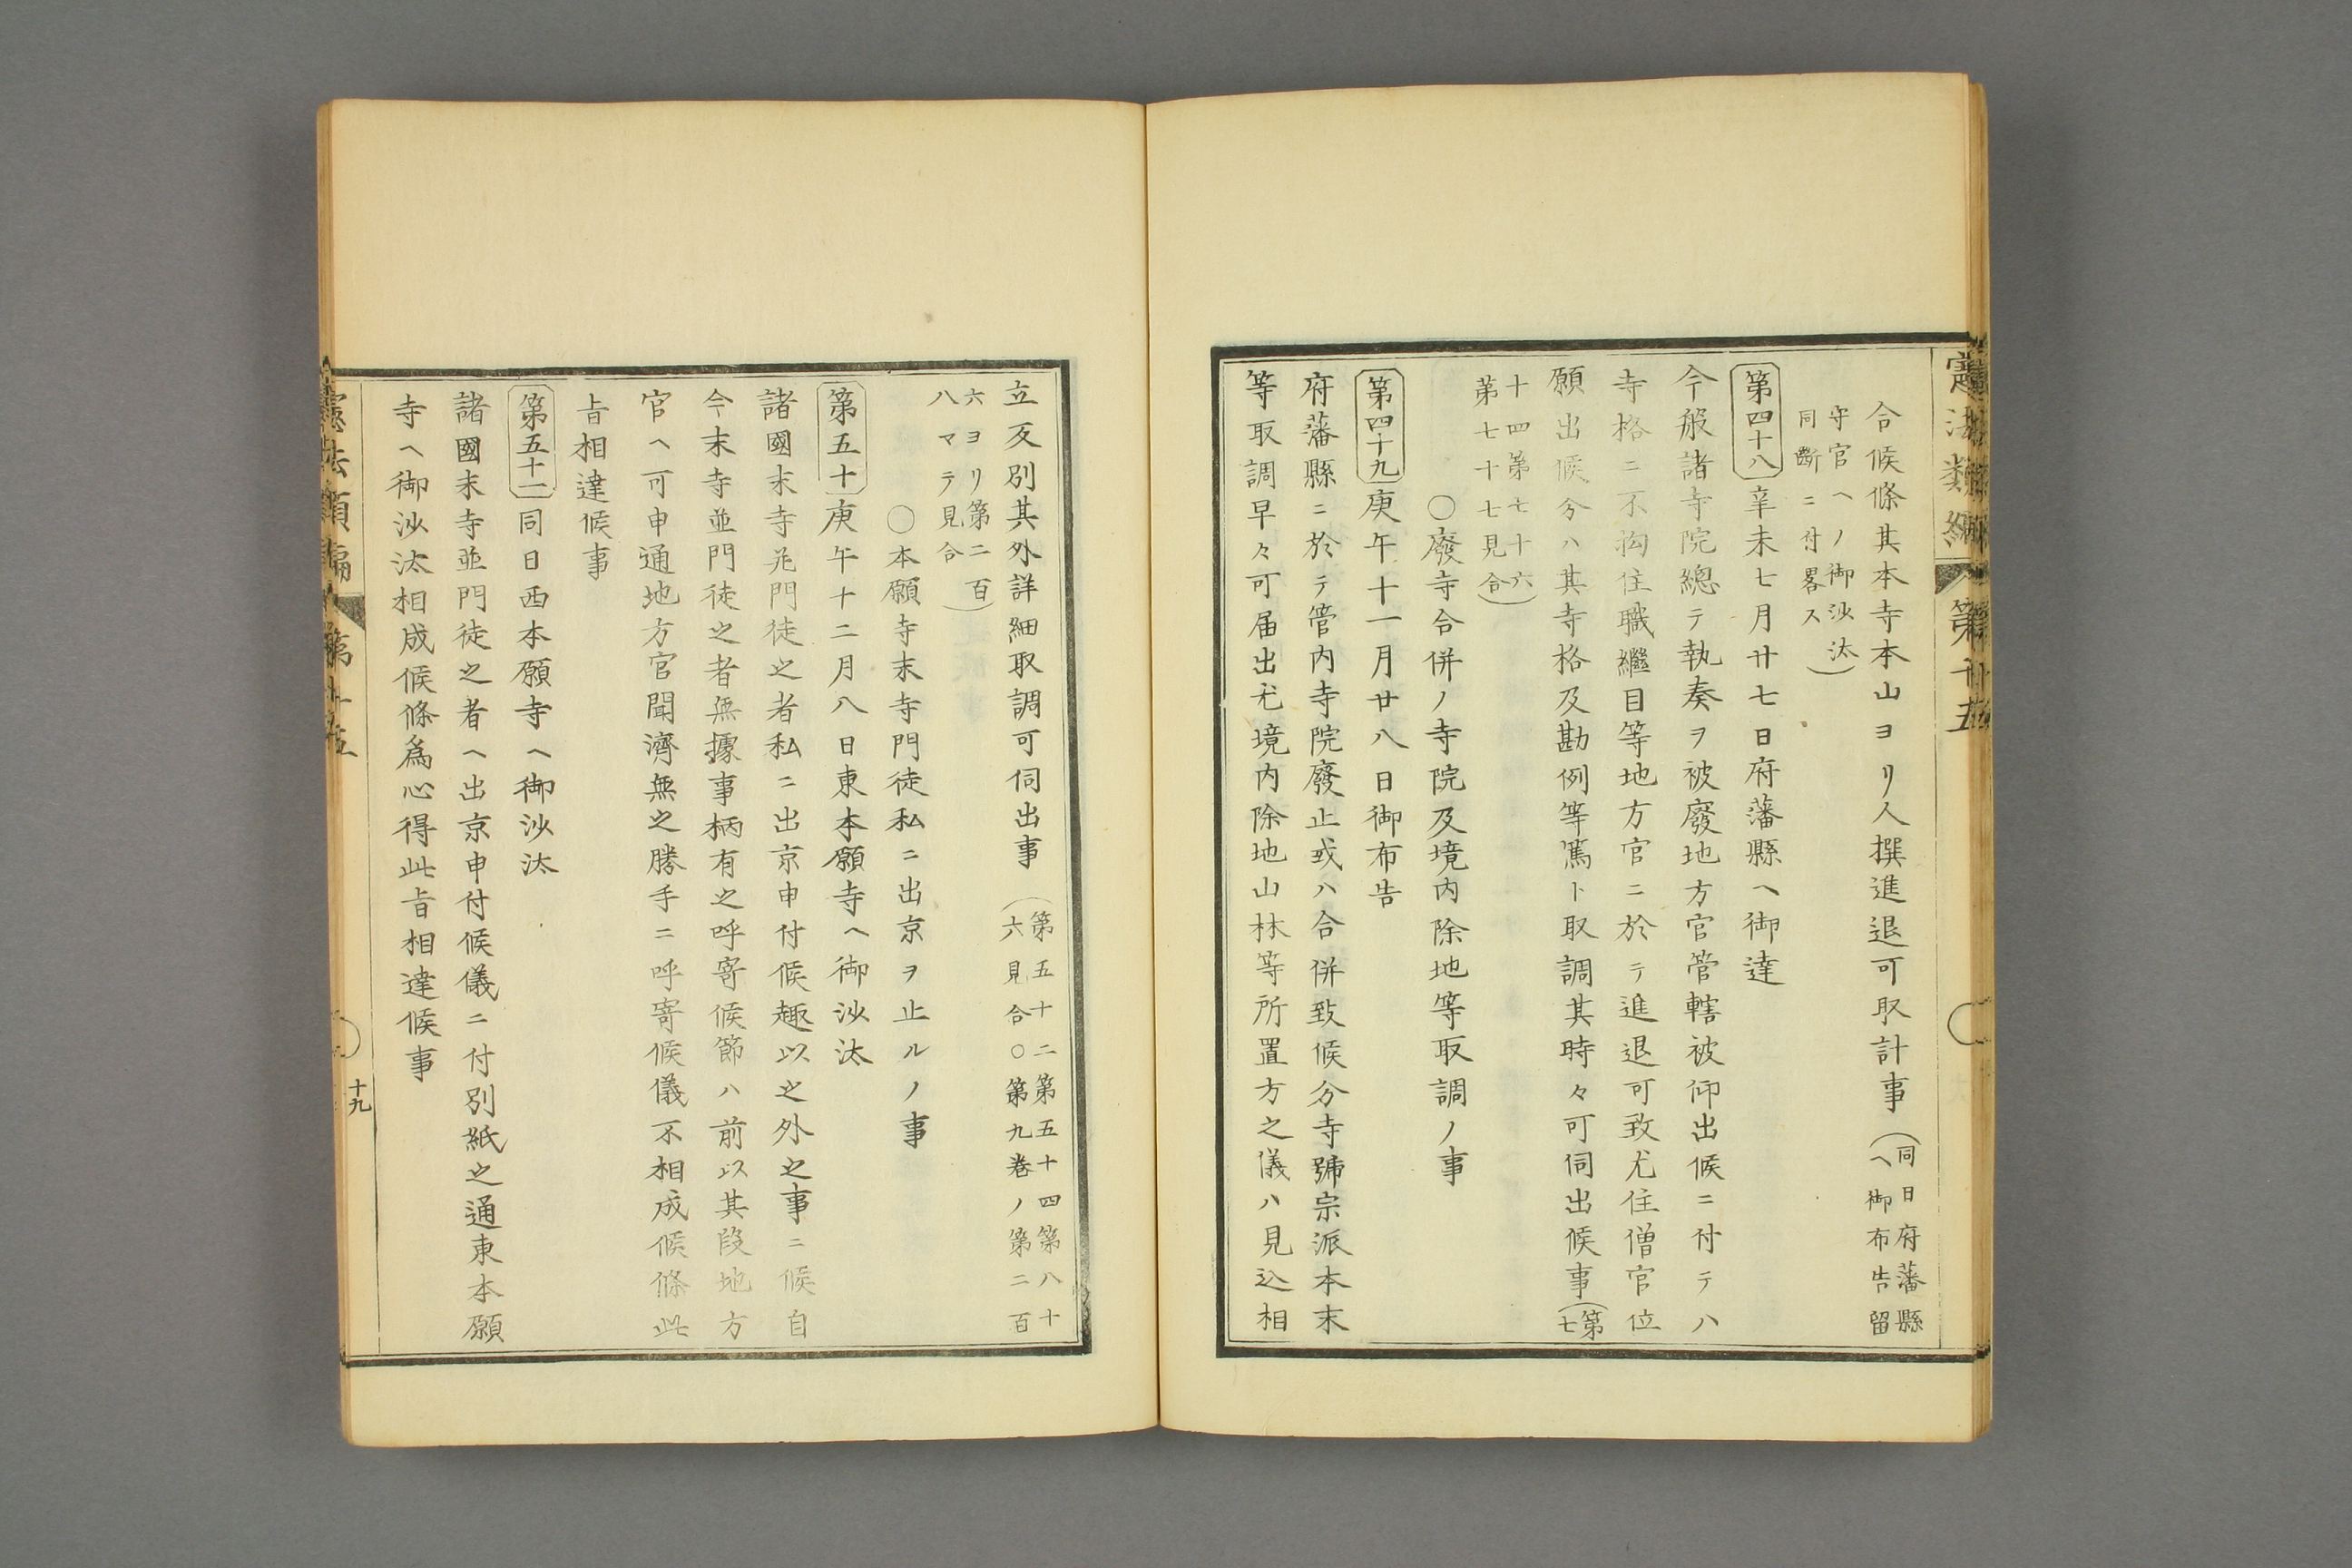 憲法類編 第廿五
合候條其本寺本山ヨリ人撰進退可取計事(同日府藩縣
ヘ御布告留
守官ヘノ御沙汰)
同斷ニ付畧ス
第四十八 辛未七月廿七日府藩縣ヘ御達
今般諸寺院總テ執奏ヲ被廢地方官管轄被仰出候ニ付テハ
寺格ニ不拘住職繼目等地方官ニ於テ進退可致尤住僧官位
願出候分ハ其寺格及勘例等篤ト取調其時々可伺出候事(第
七
十四第七十六
第七十七見合)
〇廢寺合併ノ寺院及境内除地等取調ノ事
第四十九 庚午十一月廿八日御布告
府藩縣ニ於テ管内寺院廢止或ハ合併致候分寺號宗派本末
等取調早々可届出尤境内除地山林等所置方之儀ハ見込相
立反別其外詳細取調可伺出事(第五十二第五十四第八十
六見合〇第九卷ノ第二百
六ヨリ第二百)
八マテ見合
〇本願寺末寺門徒私ニ出京ヲ止ルノ事
第五十 庚午十二月八日東本願寺ヘ御沙汰
諸國末寺並門徒之者私ニ出京申付候趣以之外之事ニ候自
今末寺並門徒之者無據事柄有之呼寄候節ハ前以其段地方
官ヘ可申通地方官聞濟無之勝手ニ呼寄候儀不相成候條此
旨相達候事
第五十一 同日西本願寺ヘ御沙汰
諸國末寺並門徒之者ヘ出京申付候儀ニ付別紙之通東本願
寺ヘ御沙汰相成候條爲心得此旨相達候事
憲法類編 第廿五
十九